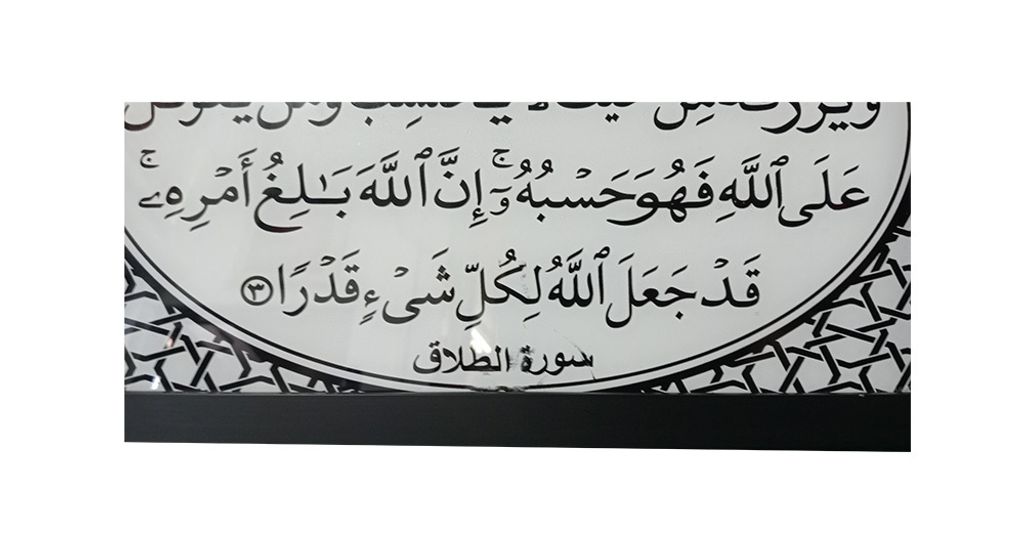 وَيَرْزُقْهُ مِنْ حَيْثُ لَا يَحْتَسِبُ وَمَن يَتَوَكَّلْ
عَلَى ٱللَّهِ فَهُوَ حَسْبُهُۥٓ ۚ إِنَّ ٱللَّهَ بَـٰلِغُ أَمْرِهِۦ ۚ
قَدْ جَعَلَ ٱللَّهُ لِكُلِّ شَىْءٍ قَدْرًا ٣
سورة الطلاق